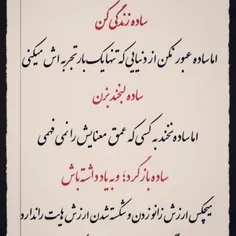 ساده زندگی کن
اما ساده عبور نکن از دنیایی که تنها یک بار تجربه اش میکنی
ساده لبخند بزن
اما ساده نخند به کسی که عمق معنایش را نمی فهمی
ساده بازگرد؛ و به یاد داشته باش
هیچکس ارزش زانو زدن و شکسته شدن ارزش هایت را ندارد